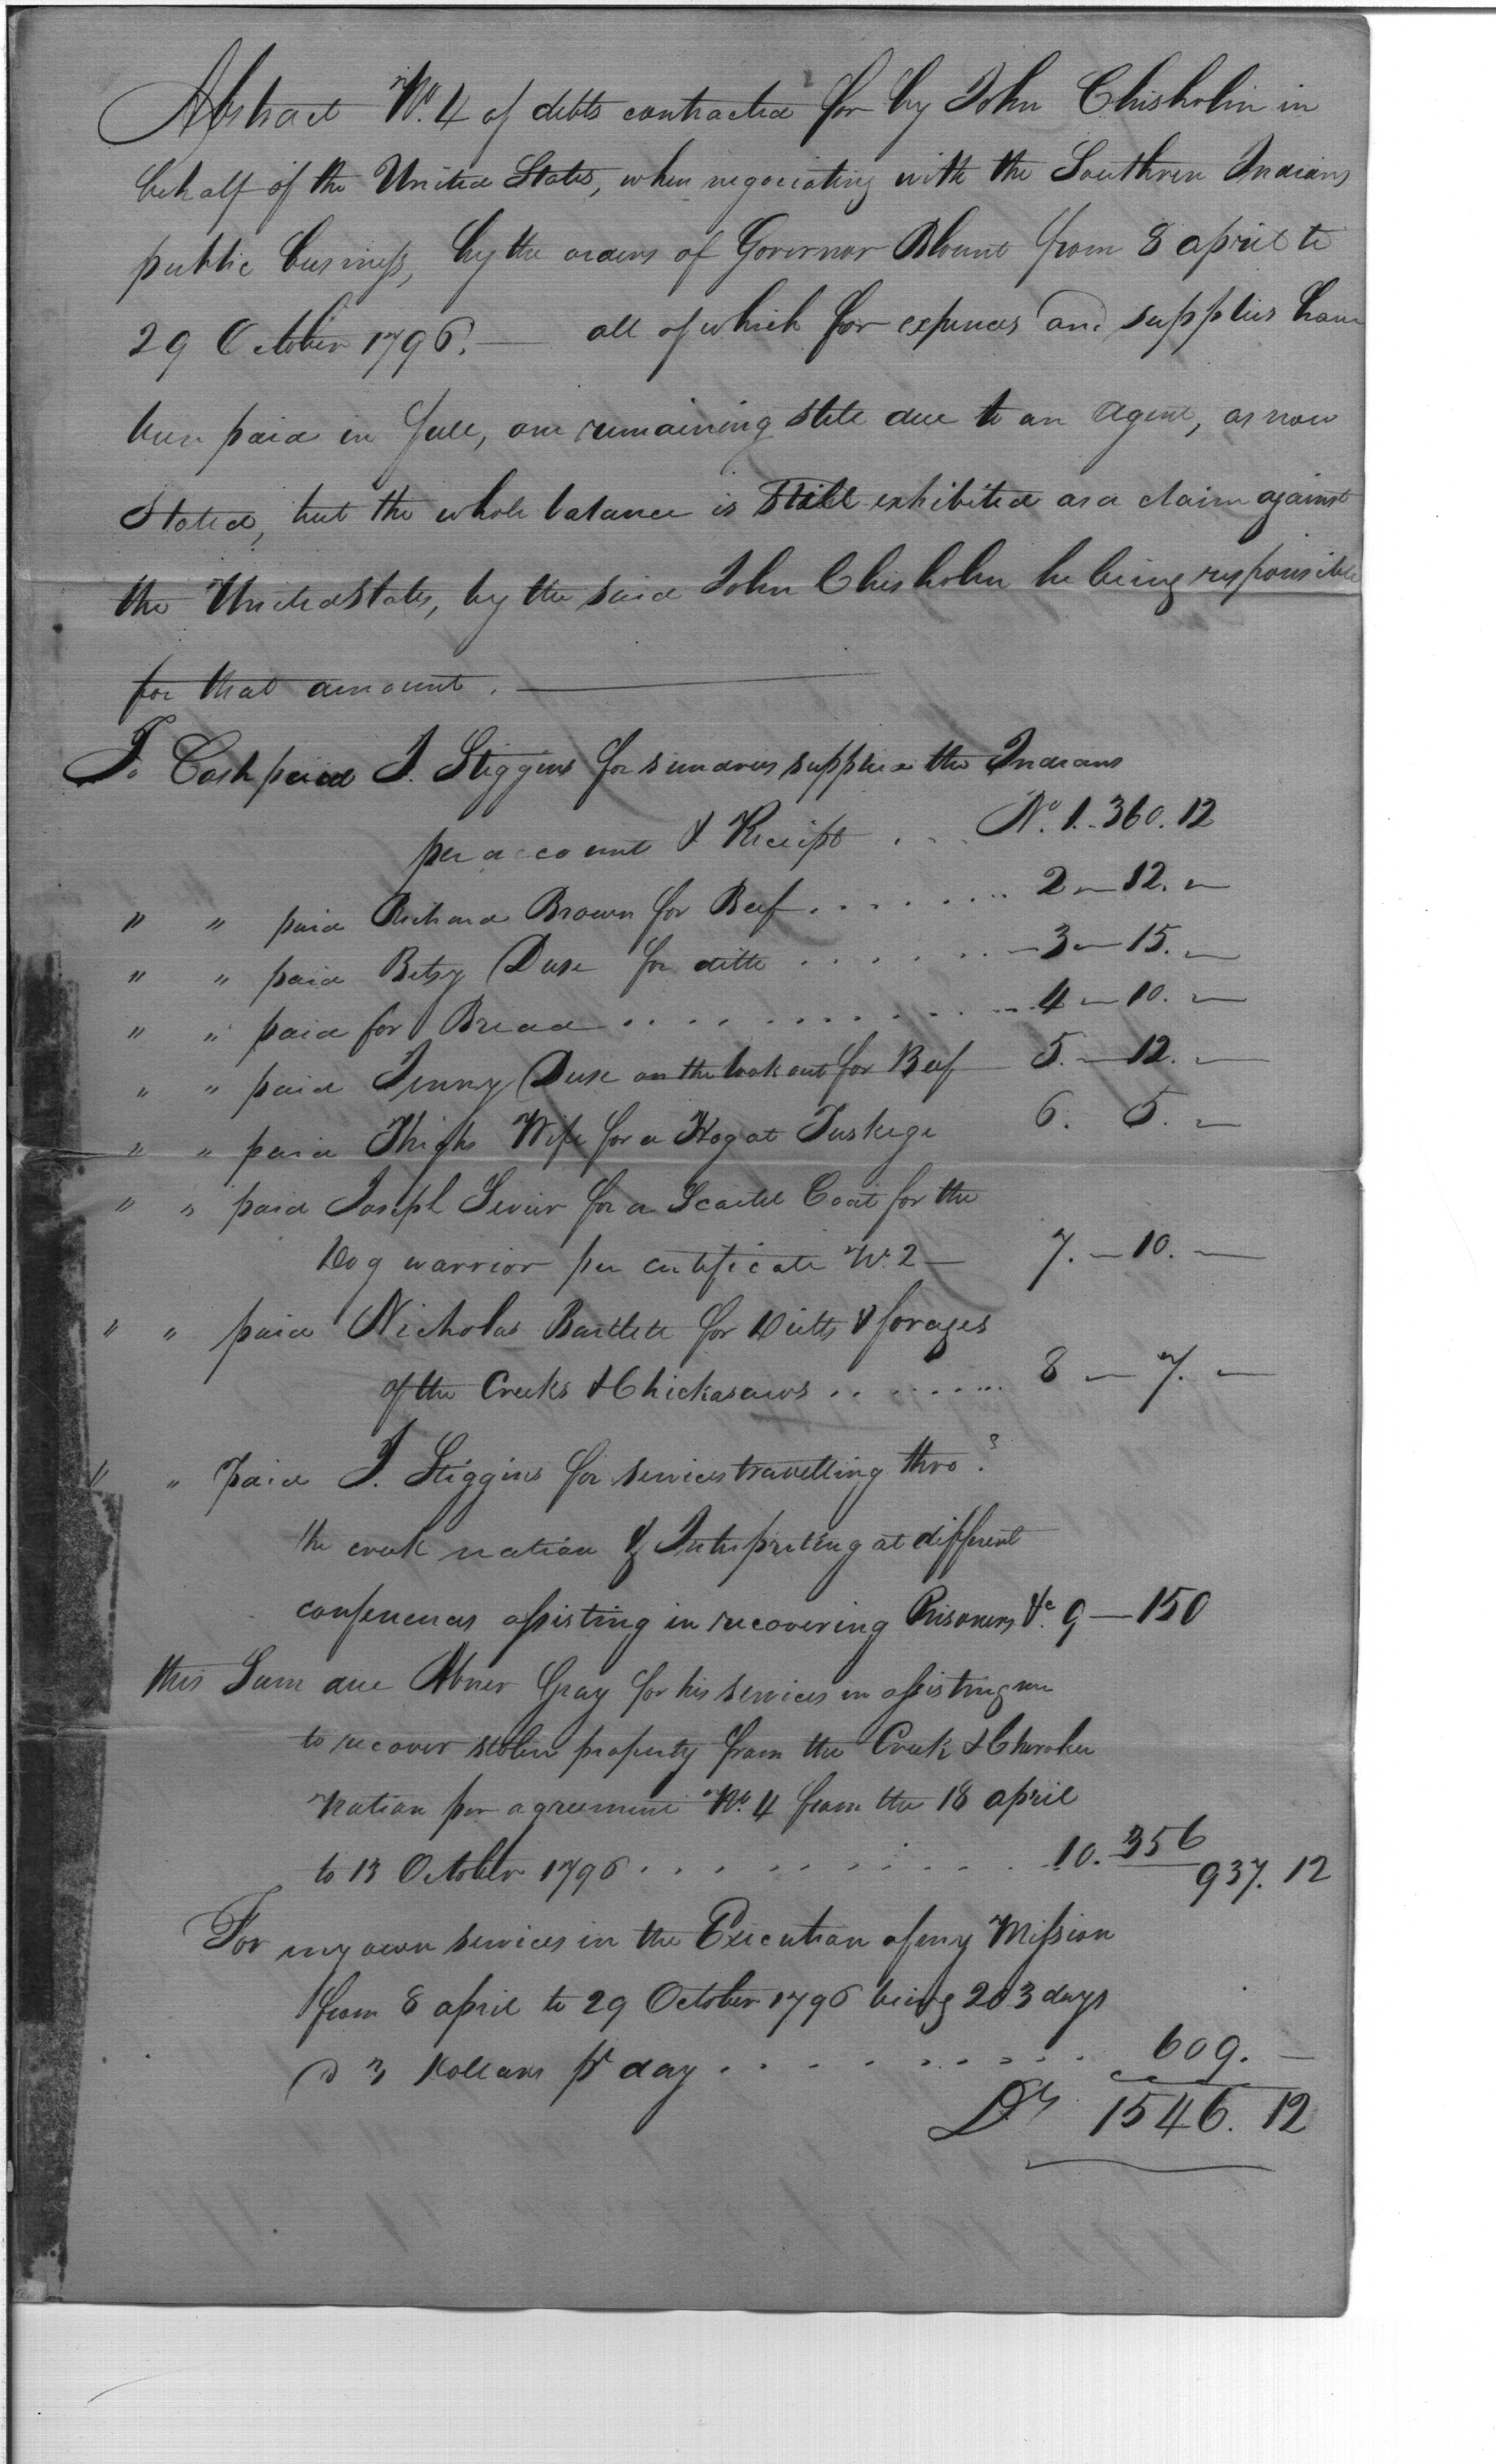 Abstract No. 4 of debts contracted for by John Chisholm in
behalf of the United States, when negociating with the Southren Indians
public business, by the orders of Governor Blount from 8 april to
29 October 1796. — all of which for expences and supplies have
been paid in full, one remaining still due to an Agent, as now
Stated, but the whole balance is Still exhibited as a claim against
the United States, by the said John Chisholm he being responsible
for that amount. —
To Cash paid J. Stiggins for sundries supplies the Indians
per account & Receipt . . . No. 1. - 360. 12
" " paid Richard Brown for Beef . . . . . . . 2 — 12. —
" " paid Betsy Duse for ditto . . . . . . . — 3 — 15. —
" " paid for Bread . . . . . . . . . . . . 4 — 10. —
" " paid Jenny Duse on the look out for Beef 5. — 12. —
" " paid Thighs Wife for a Hog at Tuskege 6. 5. —
" " paid Joseph Sevier for a Scarlet Coat for the
Dog warrior per certificate No. 2 — 7. — 10. —
" " paid Nicholas Bartlett for Diitts & forages
of the Creeks & Chickasaws . . . . . . . . 8 — 7. —
" " Paid J. Stiggins for services travelling thro'
the creek nation & Interpreting at different
conferences assisting in recovering Prisoners &c. 9 — 150
this Sum due Abner Gray for his services in assisting me
to recover stolen property from the Creek & Cherokee
Nation per agreement No. 4 from the 18 april
to 13 October 1796 . . . . . . . . . . . 10. 356
937. 12
For my own services in the Execution of my Mission
from 8 april to 29 October 1796 being 203 days
@ 3 Dollars pr day . . . . . . . . . . 609. —
Drs 1546. 12